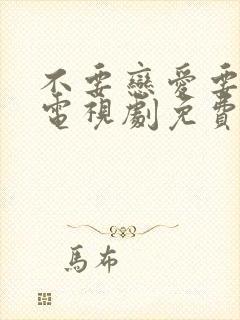 不要戀愛要
電視劇免費
馬布